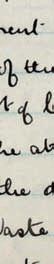 ment
of the
t of l
he ab
the d
Waste